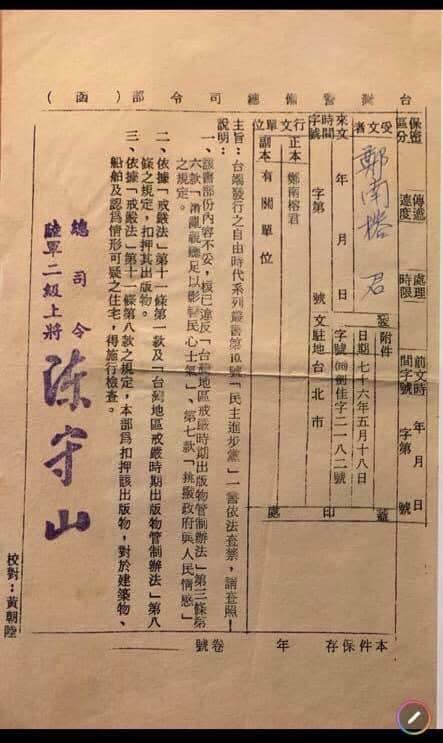 台灣警備總司令部（函）
保密區分
傳遞速度
處理時限
前文時間字號 年 月 日 字第 號
受文者 鄭南榕 君
附件
來文時間字號 年 月 日 字第 號
發文
日期 七十六年五月十八日
字號 劍佳字二一八二號
駐地 台北市
行文單位
正本 鄭南榕君
副本 有關單位
蓋印處
主旨：台端發行之自由時代系列叢書第10號「民主進步黨」一書依法查禁，請查照！
說明：
一、該書部份內容不妥，核已違反「台灣地區戒嚴時期出版物管制辦法」第三條第
六款「淆亂視聽足以影響民心士氣」、第七款「挑撥政府與人民情感」
之規定。
二、依據「戒嚴法」第十一條第一款及「台灣地區戒嚴時期出版物管制辦法」第八
條之規定，扣押其出版物。
三、依據「戒嚴法」第十一條第八款之規定，本部為扣押該出版物，對於建築物、
船舶及認為情形可疑之住宅，得施行檢查。
總司令
陸軍二級上將 陳守山
本件保存 年
卷號
校對：黃朝陸